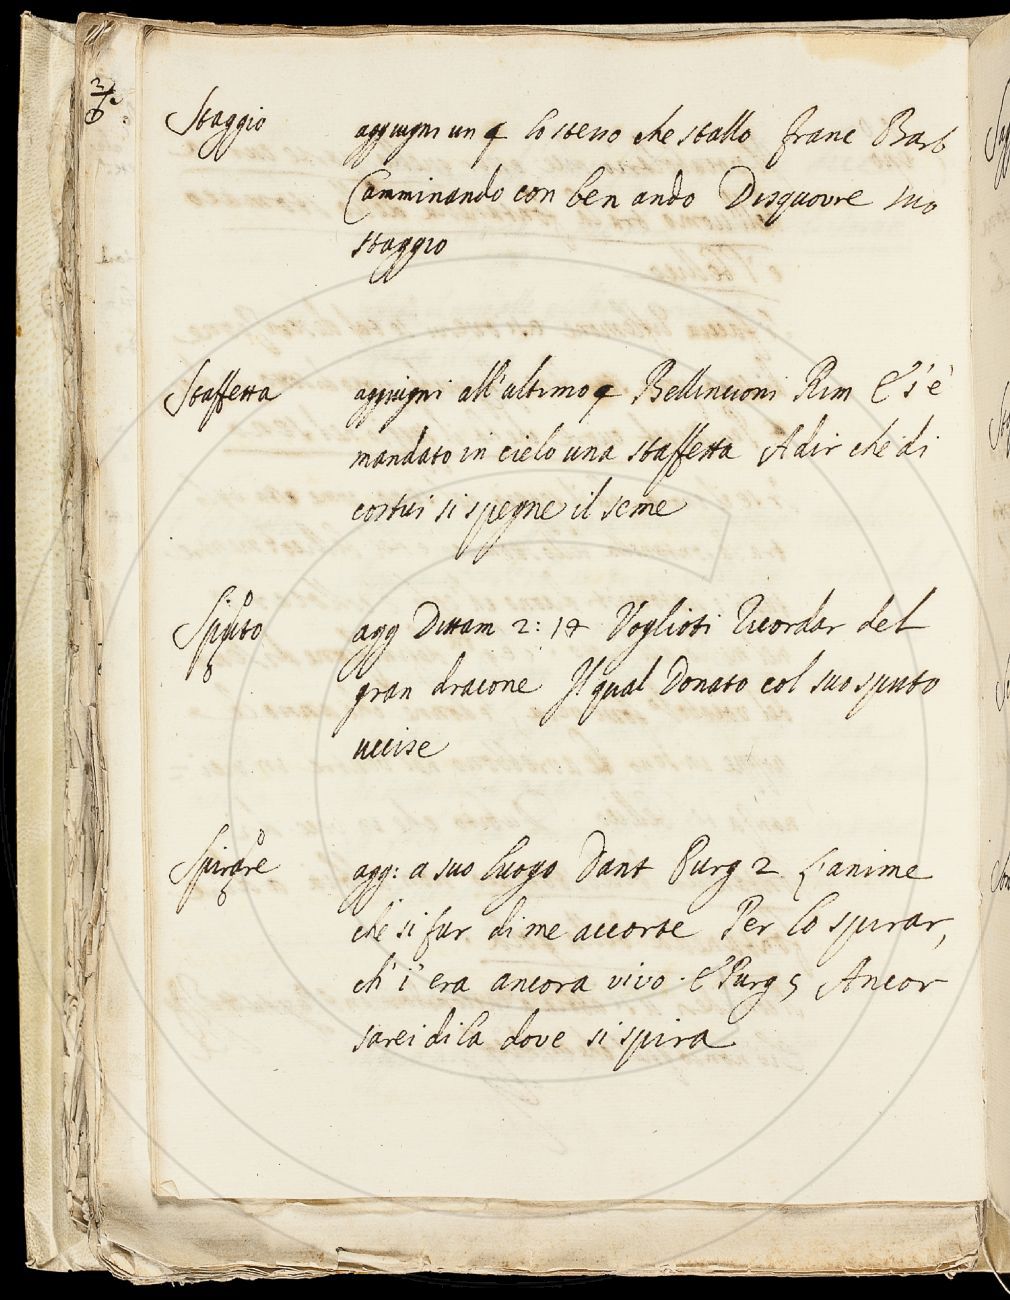 Staggio aggiugni un § lo stesso che stallo franc Barb
Camminando con ben ando Disquovre suo
staggio
Staffetta aggiugni all'ultimo § Bellincioni Rim E s'è
mandato in cielo una staffetta A dir che di
costui si spegne il seme
Sputo agg Dittam 2: 14 Voglioti ricordar del
gran dracone Il qual Donato col suo sputo
uccise
Spirare agg: a suo luogo Dant Purg 2 L'anime
che si fur di me accorte Per lo spirar,
ch'i' era ancora vivo. E Purg 5 Ancor
sarei di la dove si spira